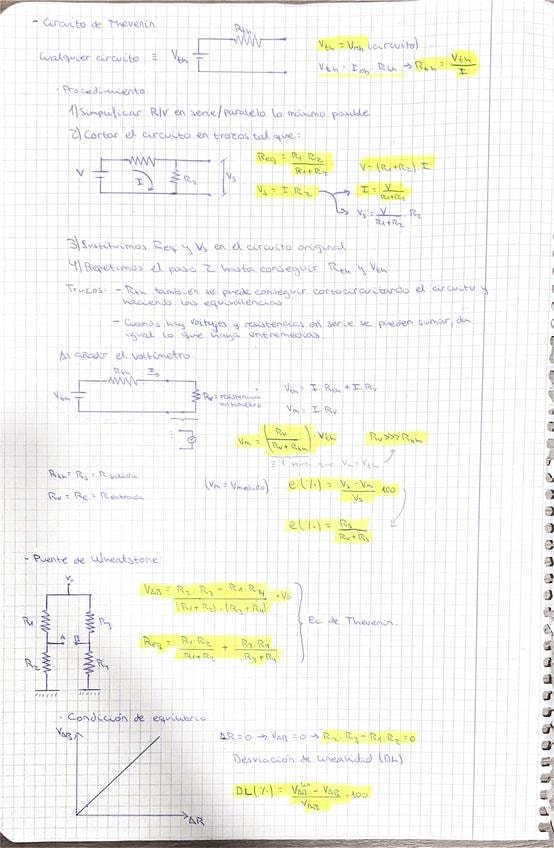 - Circuito de Thevenin
Rth
Cualquier circuito ≡ Vth
Vth = Vab (circuito)
Vth = Iab · Rth → Rth = Vth / I
· Procedimiento
1) Simplificar R/V en serie/paralelo lo máximo posible
2) Cortar el circuito en trozos tal que:
V I R2 Vs
Req = R1 · R2 / R1 + R2
V = (R1 + R2) · I
Vs = I · R2
I = V / R1 + R2
Vs = V / R1 + R2 · R2
3) Sustituimos Req y Vs en el circuito original
4) Repetimos el paso 2 hasta conseguir Rth y Vth
Trucos: - Rth también se puede conseguir cortocircuitando el circuito y
haciendo las equivalencias
- Cuando hay voltajes y resistencias en serie se pueden sumar, da
igual lo que haya entremedias.
Al añadir el voltímetro.
Rth
Vth
Rv = resistencia
voltímetro
Vth = I · Rth + I · Rv
Vm = I · Rv
Vm = (Rv / Rv + Rth) · Vth
Rv >>> Rth
≡ 1 para que Vm = Vth
Rth = Rs = R salida
Rv = Re = R entrada
(Vm = Vmedido)
e(%) = Vs - Vm / Vs · 100
e(%) = Rs / Rv + Rs
- Puente de Wheatstone:
V0
R1 A B R3
R2 R4
VAB = R2 · R3 - R1 · R4 / (R1 + R2) · (R3 + R4) · V0
Req = R1 · R2 / R1 + R2 + R3 · R4 / R3 + R4
Ec de Thevenin.
· Condición de equilibrio
VAB
ΔR
ΔR = 0 → VAB = 0 → R2 · R3 - R1 · R2 = 0
Desviación de linealidad (DL)
DL(%) = VAB - VAB / VAB · 100